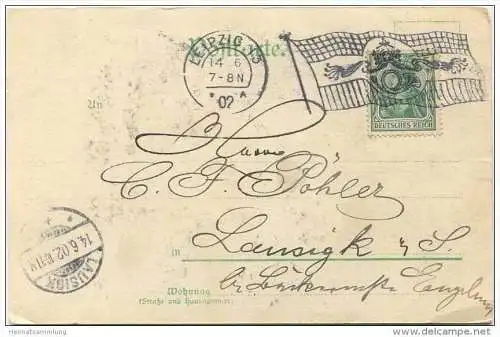 Postkarte.
LEIPZIG 13
14 6
7-8N
* A
02
DEUTSCHES REICH
An
Herrn
C. F. Pöhler
in Lausigk i/S.
bei
Wohnung
(Straße und Hausnummer)
LAUSIGK
14.6.02
Heimatsammlung
www.delcampe.net